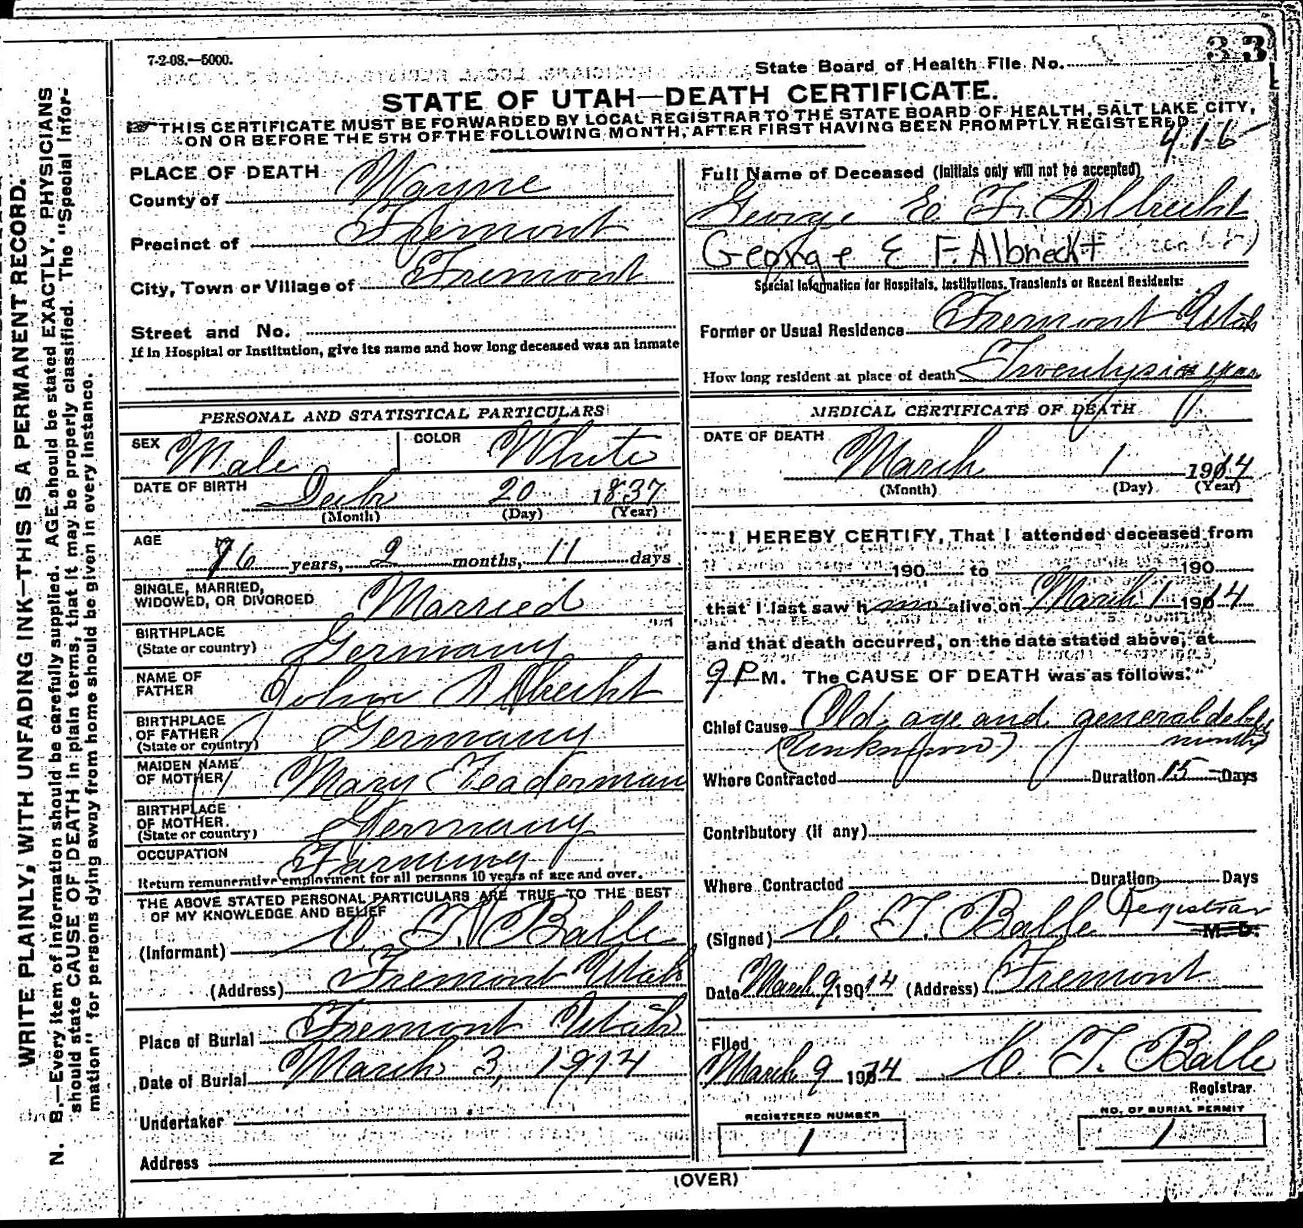 33
7-2-08.—5000.
State Board of Health File No.
STATE OF UTAH—DEATH CERTIFICATE.
THIS CERTIFICATE MUST BE FORWARDED BY LOCAL REGISTRAR TO THE STATE BOARD OF HEALTH, SALT LAKE CITY,
ON OR BEFORE THE 5TH OF THE FOLLOWING MONTH, AFTER FIRST HAVING BEEN PROMPTLY REGISTERED.
416
PLACE OF DEATH
County of Wayne
Precinct of Fremont
City, Town or Village of Fremont
Street and No.
If in Hospital or Institution, give its name and how long deceased was an inmate
Full Name of Deceased (Initials only will not be accepted)
George E F. Albrecht
George E F. Albrecht
Special Information for Hospitals, Institutions, Transients or Recent Residents:
Former or Usual Residence Fremont Utah
How long resident at place of death Twentysix year
PERSONAL AND STATISTICAL PARTICULARS
SEX Male COLOR White
DATE OF BIRTH 20 1837
(Month) (Day) (Year)
AGE 76 years, 2 months, 11 days
SINGLE, MARRIED,
WIDOWED, OR DIVORCED Married
BIRTHPLACE
(State or country) Germany
NAME OF
FATHER John Albrecht
BIRTHPLACE
OF FATHER
(State or country) Germany
MAIDEN NAME
OF MOTHER Mary Teaderman
BIRTHPLACE
OF MOTHER.
(State or country) Germany
OCCUPATION Farming
Return remunerative employment for all persons 10 years of age and over.
THE ABOVE STATED PERSONAL PARTICULARS ARE TRUE TO THE BEST
OF MY KNOWLEDGE AND BELIEF
(Informant) C. T. Balle
(Address) Fremont Utah
Place of Burial Fremont Utah
Date of Burial March 3, 1914
Undertaker
Address
MEDICAL CERTIFICATE OF DEATH
DATE OF DEATH
March 1 1914
(Month) (Day) (Year)
I HEREBY CERTIFY, That I attended deceased from
190 to 190
that I last saw him alive on March 1 1914
and that death occurred, on the date stated above, at
9 P M. The CAUSE OF DEATH was as follows:
Chief Cause Old age and general debility
(Unknown) months
Where Contracted Duration 15 Days
Contributory (if any)
Where Contracted Duration Days
(Signed) C. T. Balle Registrar M. D.
Date March 9 1914 (Address) Fremont
Filed
March 9 1914 C. T. Balle
Registrar
REGISTERED NUMBER
1
NO. OF BURIAL PERMIT
1
(OVER)
WRITE PLAINLY, WITH UNFADING INK—THIS IS A PERMANENT RECORD.
N. B.—Every item of information should be carefully supplied. AGE should be stated EXACTLY. PHYSICIANS
should state CAUSE OF DEATH in plain terms, that it may be properly classified. The "Special Infor-
mation" for persons dying away from home should be given in every instance.